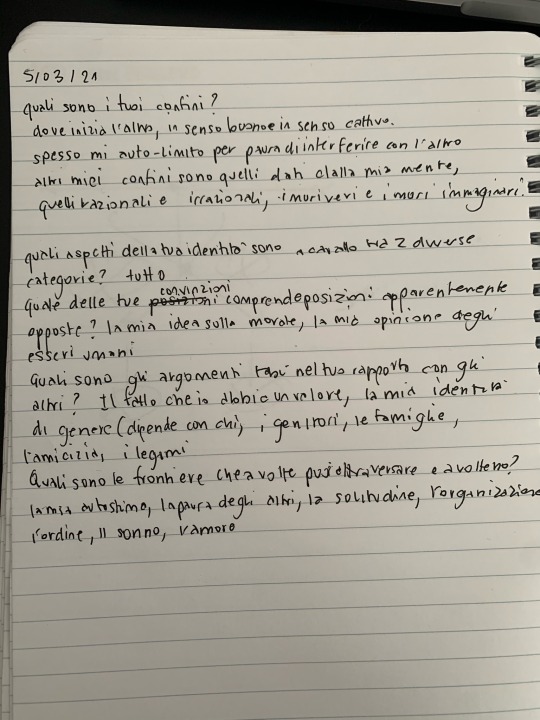 5/03/21
quali sono i tuoi confini?
dove inizia l'altro, in senso buono e in senso cattivo.
spesso mi auto-limito per paura di interferire con l'altro
altri miei confini sono quelli dati dalla mia mente,
quelli razionali e irrazionali, i muri veri e i muri immaginari.
quali aspetti della tua identità sono a cavallo tra 2 diverse
categorie? tutto
convinzioni
quale delle tue posizioni comprende posizioni apparentemente
opposte? la mia idea sulla morale, la mia opinione degli
esseri umani
Quali sono gli argomenti tabù nel tuo rapporto con gli
altri? Il fatto che io abbia un valore, la mia identità
di genere (dipende con chi), i genitori, le famiglie,
l'amicizia, i legami
Quali sono le frontiere che a volte puoi attraversare e a volte no?
la mia autostima, la paura degli altri, la solitudine, l'organizzazione
l'ordine, il sonno, l'amore